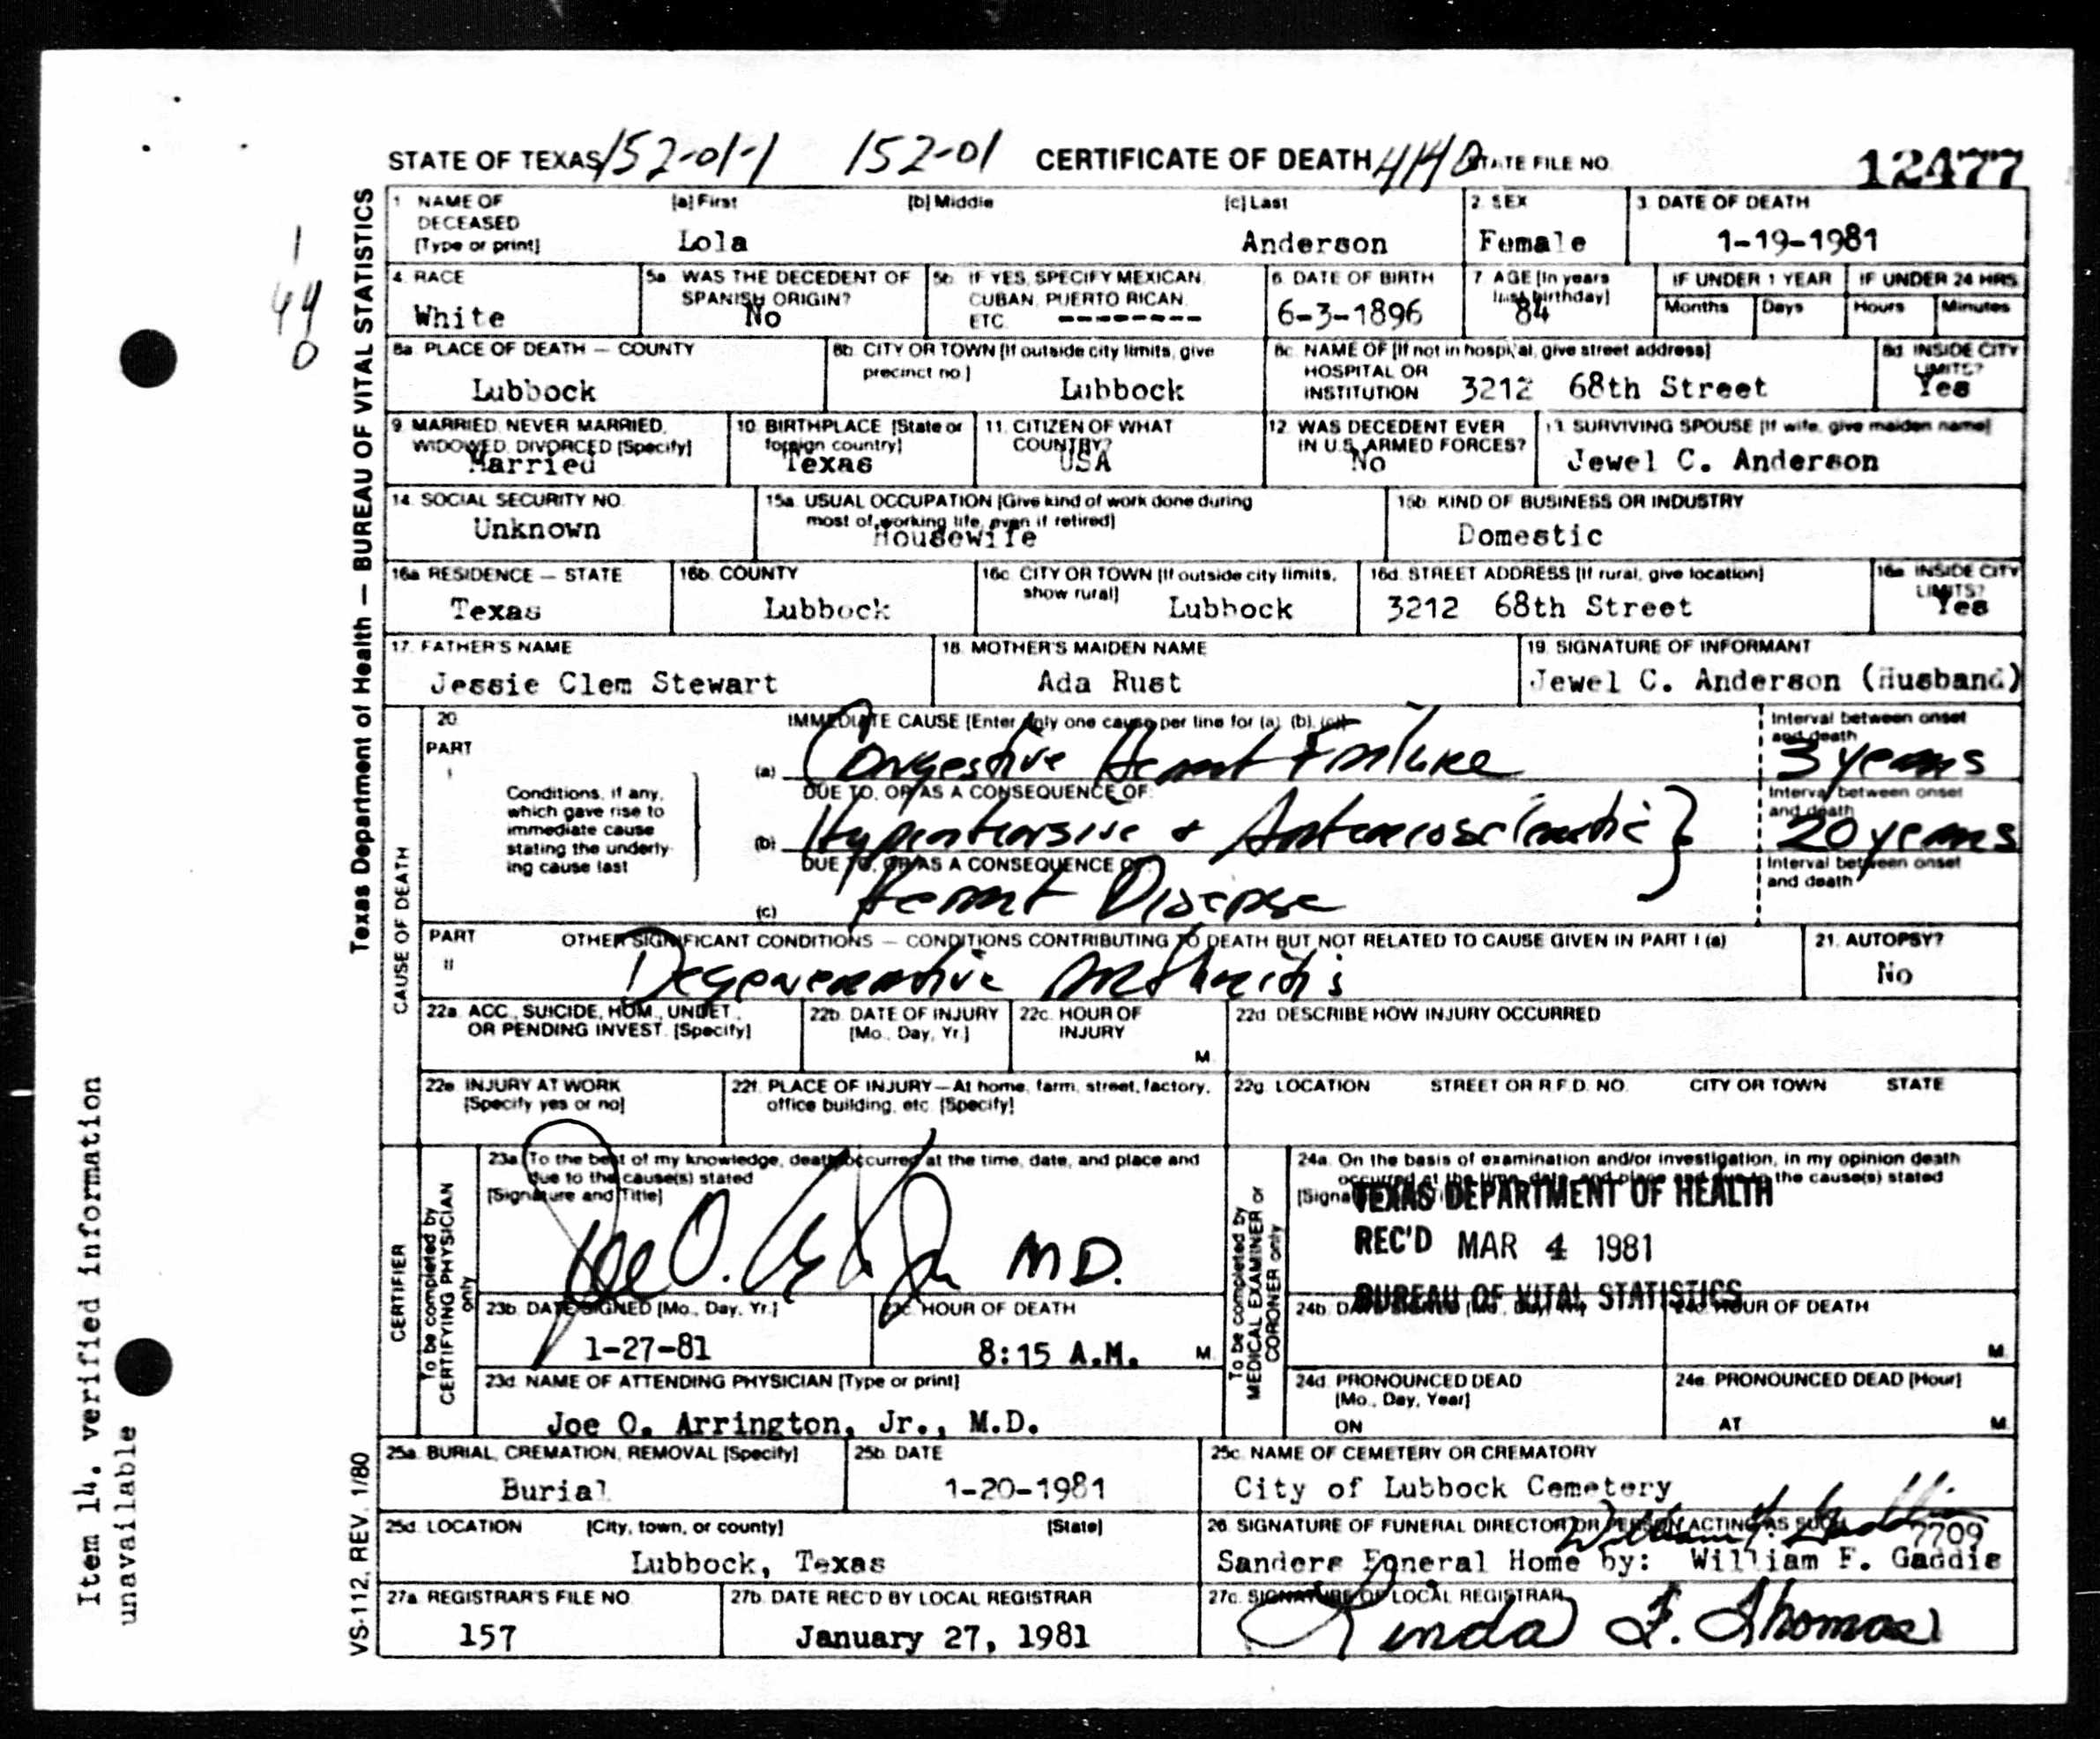 STATE OF TEXAS 152-01-1 152-01 CERTIFICATE OF DEATH 4140 STATE FILE NO. 12477
1 NAME OF DECEASED [Type or print] [a] First [b] Middle [c] Last 2. SEX 3. DATE OF DEATH
Lola Anderson Female 1-19-1981
4. RACE 5a. WAS THE DECEDENT OF SPANISH ORIGIN? 5b. IF YES, SPECIFY MEXICAN, CUBAN, PUERTO RICAN, ETC. 6. DATE OF BIRTH 7. AGE [In years last birthday] IF UNDER 1 YEAR IF UNDER 24 HRS.
Months Days Hours Minutes
White No -------- 6-3-1896 84
8a. PLACE OF DEATH — COUNTY 8b. CITY OR TOWN [If outside city limits, give precinct no.] 8c. NAME OF [If not in hospital, give street address] HOSPITAL OR INSTITUTION 8d. INSIDE CITY LIMITS?
Lubbock Lubbock 3212 68th Street Yes
9. MARRIED, NEVER MARRIED, WIDOWED, DIVORCED [Specify] 10. BIRTHPLACE [State or foreign country] 11. CITIZEN OF WHAT COUNTRY? 12. WAS DECEDENT EVER IN U.S. ARMED FORCES? 13. SURVIVING SPOUSE [If wife, give maiden name]
Married Texas USA No Jewel C. Anderson
14. SOCIAL SECURITY NO. 15a. USUAL OCCUPATION [Give kind of work done during most of working life, even if retired] 15b. KIND OF BUSINESS OR INDUSTRY
Unknown Housewife Domestic
16a. RESIDENCE — STATE 16b. COUNTY 16c. CITY OR TOWN [If outside city limits, show rural] 16d. STREET ADDRESS [If rural, give location] 16e. INSIDE CITY LIMITS?
Texas Lubbock Lubbock 3212 68th Street Yes
17. FATHER'S NAME 18. MOTHER'S MAIDEN NAME 19. SIGNATURE OF INFORMANT
Jessie Clem Stewart Ada Rust Jewel C. Anderson (Husband)
20. PART I IMMEDIATE CAUSE [Enter only one cause per line for (a), (b), (c)] Interval between onset and death
(a) Congestive Heart Failure 3 years
Conditions, if any, which gave rise to immediate cause stating the underlying cause last
DUE TO, OR AS A CONSEQUENCE OF: Interval between onset and death
(b) Hypertensive + Arteriosclerotic } 20 years
DUE TO, OR AS A CONSEQUENCE OF: Interval between onset and death
(c) Heart Disease
PART II OTHER SIGNIFICANT CONDITIONS — CONDITIONS CONTRIBUTING TO DEATH BUT NOT RELATED TO CAUSE GIVEN IN PART I (a) 21. AUTOPSY?
Degenerative Arthritis No
22a. ACC., SUICIDE, HOM., UNDET., OR PENDING INVEST. [Specify] 22b. DATE OF INJURY [Mo., Day, Yr.] 22c. HOUR OF INJURY M 22d. DESCRIBE HOW INJURY OCCURRED
22e. INJURY AT WORK [Specify yes or no] 22f. PLACE OF INJURY—At home, farm, street, factory, office building, etc. [Specify] 22g. LOCATION STREET OR R.F.D. NO. CITY OR TOWN STATE
CAUSE OF DEATH
CERTIFIER
To be completed by CERTIFYING PHYSICIAN only
23a. To the best of my knowledge, death occurred at the time, date, and place and due to the cause(s) stated
[Signature and Title]
Joe O. Arrington Jr M.D.
23b. DATE SIGNED [Mo., Day, Yr.] 23c. HOUR OF DEATH
1-27-81 8:15 A.M. M
23d. NAME OF ATTENDING PHYSICIAN [Type or print]
Joe O. Arrington, Jr., M.D.
To be completed by MEDICAL EXAMINER or CORONER only
24a. On the basis of examination and/or investigation, in my opinion death occurred at the time, date, and place and due to the cause(s) stated
TEXAS DEPARTMENT OF HEALTH
REC'D MAR 4 1981
BUREAU OF VITAL STATISTICS
24b. DATE SIGNED [Mo., Day, Yr.] 24c. HOUR OF DEATH M
24d. PRONOUNCED DEAD [Mo., Day, Year] ON 24e. PRONOUNCED DEAD [Hour] AT M
25a. BURIAL, CREMATION, REMOVAL [Specify] 25b. DATE 25c. NAME OF CEMETERY OR CREMATORY
Burial 1-20-1981 City of Lubbock Cemetery
25d. LOCATION [City, town, or county] [State] 26. SIGNATURE OF FUNERAL DIRECTOR OR PERSON ACTING AS SUCH
William F. Gaddis 7709
Lubbock, Texas Sanders Funeral Home by: William F. Gaddis
27a. REGISTRAR'S FILE NO. 27b. DATE REC'D BY LOCAL REGISTRAR 27c. SIGNATURE OF LOCAL REGISTRAR
157 January 27, 1981 Linda F. Thomas
Texas Department of Health — BUREAU OF VITAL STATISTICS
VS-112, REV. 1/80
Item 14. verified information
unavailable
1
44
0